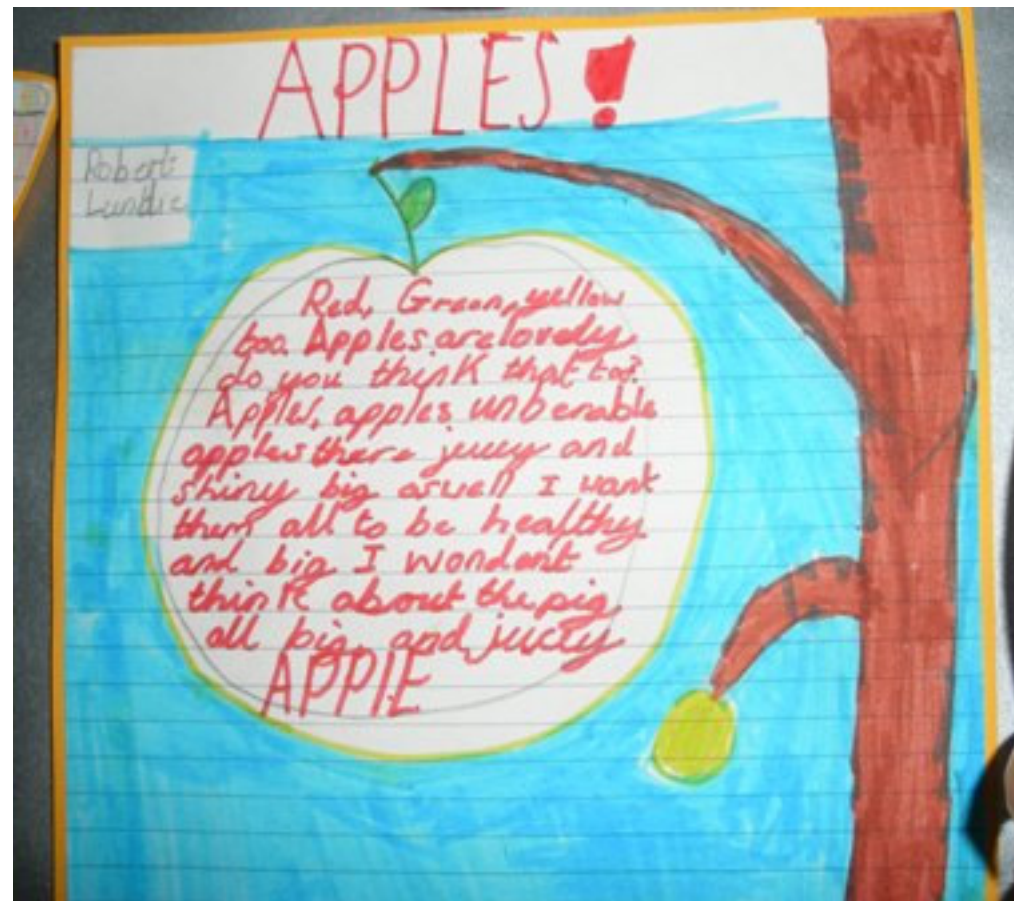 APPLES!
Robert
Lundie
Red, Green, yellow
too. Apples are lovely
do you think that too?
Apples, apples unbenable
apples there juucy and
shiny big aswell I want
them all to be healthy
and big I wondent
think about the pig
all big, and juucy
APPLE